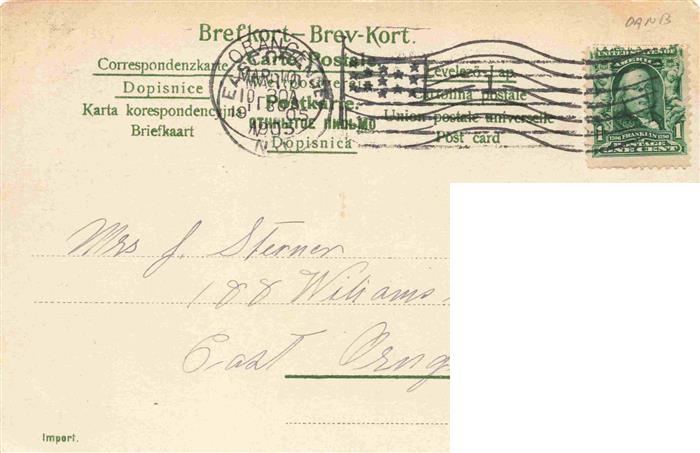 DANB
Brefkort – Brev-Kort.
Carte Postale
Correspondenzkarte
Dopisnice
Levelező-Lap
Postkarte.
Cartolina postale
Karta korespondencyjna
Union postale universelle
Briefkaart
ОТКРЫТОЕ ПИСЬМО
Post card
Dopisnica
EAST ORANGE
MAR 10
10-30A
1905
N.J.
UNITED STATES OF AMERICA
1 FRANKLIN 1
POSTAGE
ONE CENT
Mrs J. Sterner
188 Wiliams
East Orng
Import.